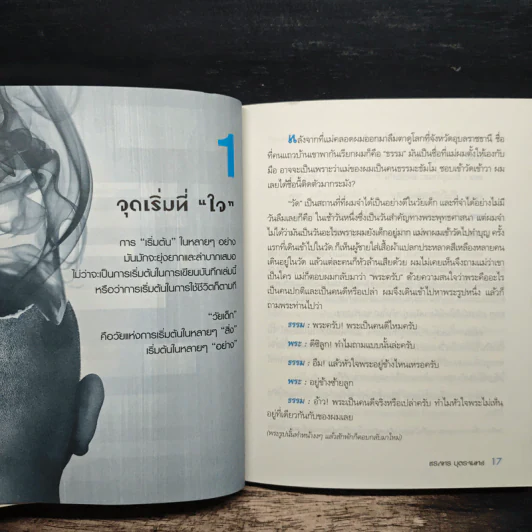 1
จุดเริ่มที่ “ใจ”
การ “เริ่มต้น” ในหลายๆ อย่าง
มันมักจะยุ่งยากและลำบากเสมอ
ไม่ว่าจะเป็นการเริ่มต้นในการเขียนบันทึกเล่มนี้
หรือว่าการเริ่มต้นในการใช้ชีวิตก็ตามที
“วัยเด็ก”
คือวัยแห่งการเริ่มต้นในหลายๆ “สิ่ง”
เริ่มต้นในหลายๆ “อย่าง”
หลังจากที่แม่คลอดผมออกมาลืมตาดูโลกที่จังหวัดอุบลราชธานี ชื่อ
ที่คนแถวบ้านเขาพากันเรียกผมก็คือ “ธรรม” มันเป็นชื่อที่แม่ผมตั้งให้เองกับ
มือ อาจจะเป็นเพราะว่าแม่ของผมเป็นคนธรรมะธัมโม ชอบเข้าวัดเข้าวา ผม
เลยได้ชื่อนี้ติดตัวมากระมัง?
“วัด” เป็นสถานที่ที่ผมจำได้เป็นอย่างดีในวัยเด็ก และที่จำได้อย่างไม่มี
วันลืมเลยก็คือ ในเช้าวันหนึ่งซึ่งเป็นวันสำคัญทางพระพุทธศาสนา แต่ผมจำ
ไม่ได้ว่ามันเป็นวันอะไรเพราะผมยังเด็กอยู่มาก แม่พาผมเข้าวัดไปทำบุญ ครั้ง
แรกที่เดินเข้าไปในวัด ก็เห็นผู้ชายใส่เสื้อผ้าแปลกประหลาดสีเหลืองหลายคน
เดินอยู่ในวัด แล้วแต่ละคนก็หัวล้านเสียด้วย ผมไม่เคยเห็นจึงถามแม่ว่าเขา
เป็นใคร แม่ก็ตอบผมกลับมาว่า “พระครับ” ด้วยความสนใจว่าพระคืออะไร
เป็นคนปกติและเป็นคนดีหรือเปล่า ผมจึงเดินเข้าไปหาพระรูปหนึ่ง แล้วก็
ถามพระท่านไปว่า
ธรรม : พระครับ! พระเป็นคนดีไหมครับ
พระ : ดีซิลูก! ทำไมถามแบบนั้นล่ะครับ
ธรรม : อืม! แล้วหัวใจพระอยู่ข้างไหนเหรอครับ
พระ : อยู่ข้างซ้ายลูก
ธรรม : อ้าว! พระเป็นคนดีจริงหรือเปล่าครับ ทำไมหัวใจพระไม่เห็น
อยู่ที่เดียวกันกับของผมเลย
17